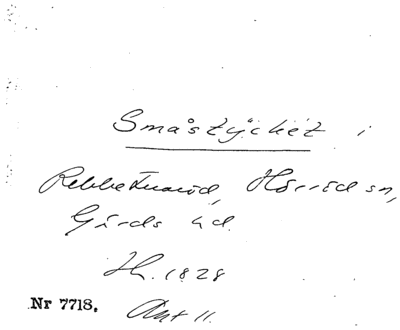 Småstycket i
Rebbetuaröd, Hörröd sn,
Gärds hd.
Hn. 1828
Nr 7718. Ant 11.